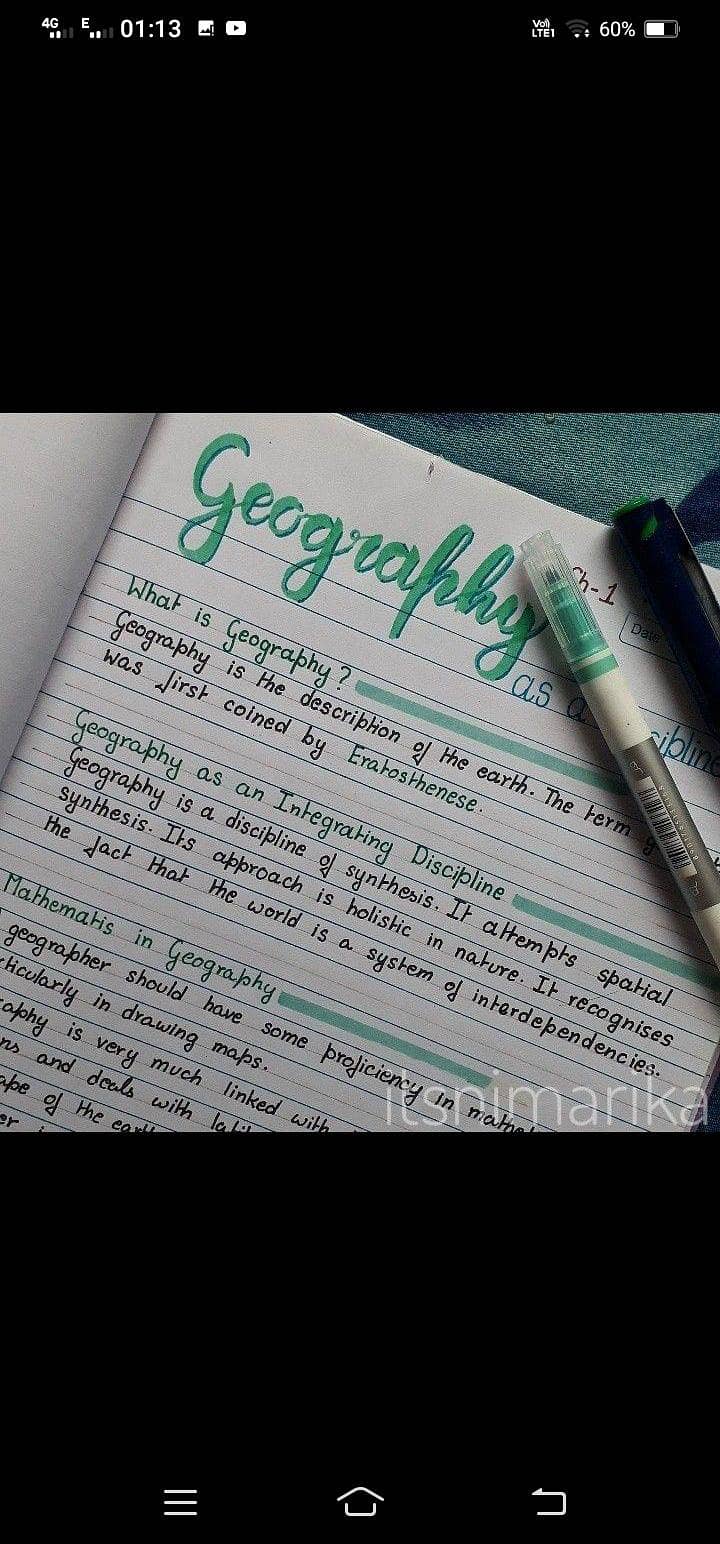 4G E 01:13 60%
Vo))
LTE1
Geography
Ch-1
Date
as a
What is Geography?
Geography is the description of the earth. The term
was first coined by Eratosthenese.
Geography as an Integrating Discipline
Geography is a discipline of synthesis. It attempts spatial
synthesis. Its approach is holistic in nature. It recognises
the fact that the world is a system of interdependencies.
Mathematis in Geography
geographer should have some proficiency in
in drawing maps.
is very much linked with
and deals with
of the
itsnimarika